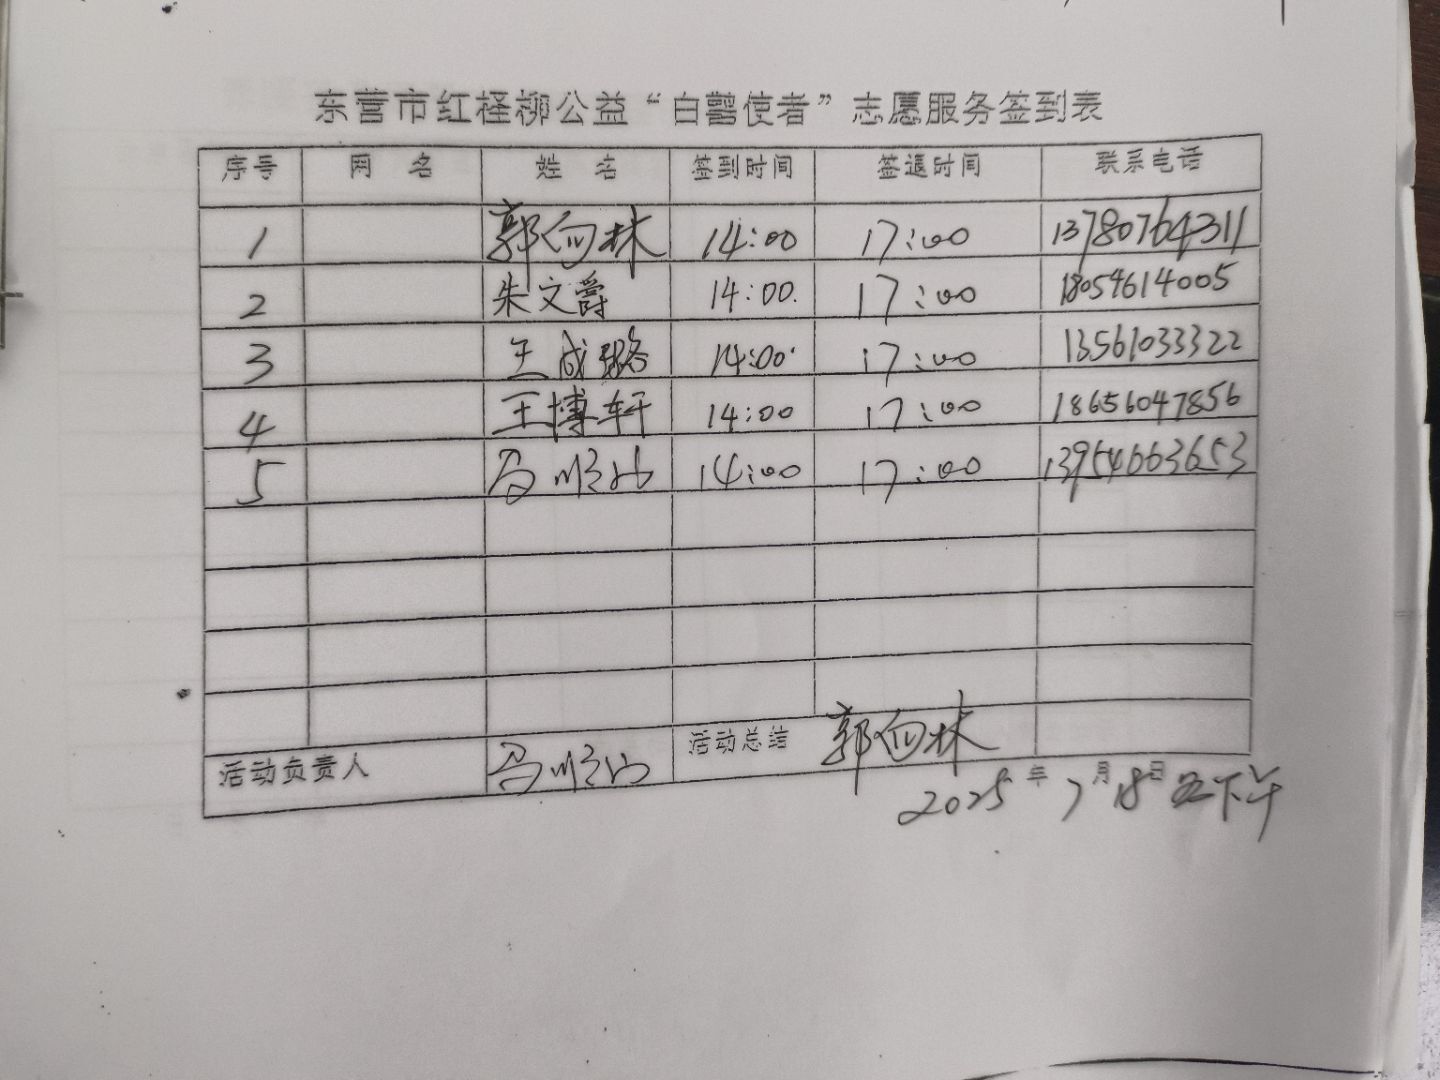 东营市红柽柳公益“白鹳使者”志愿服务签到表
序号 网名 姓名 签到时间 签退时间 联系电话
1 郭向林 14:00 17:00 13780764311
2 朱文爵 14:00. 17:00 18054614005
3 王成璐 14:00 17:00 13561033322
4 王博轩 14:00 17:00 18656047856
5 14:00 17:00 13954663653
活动负责人 活动总结 郭向林
2025年7月18日 下午